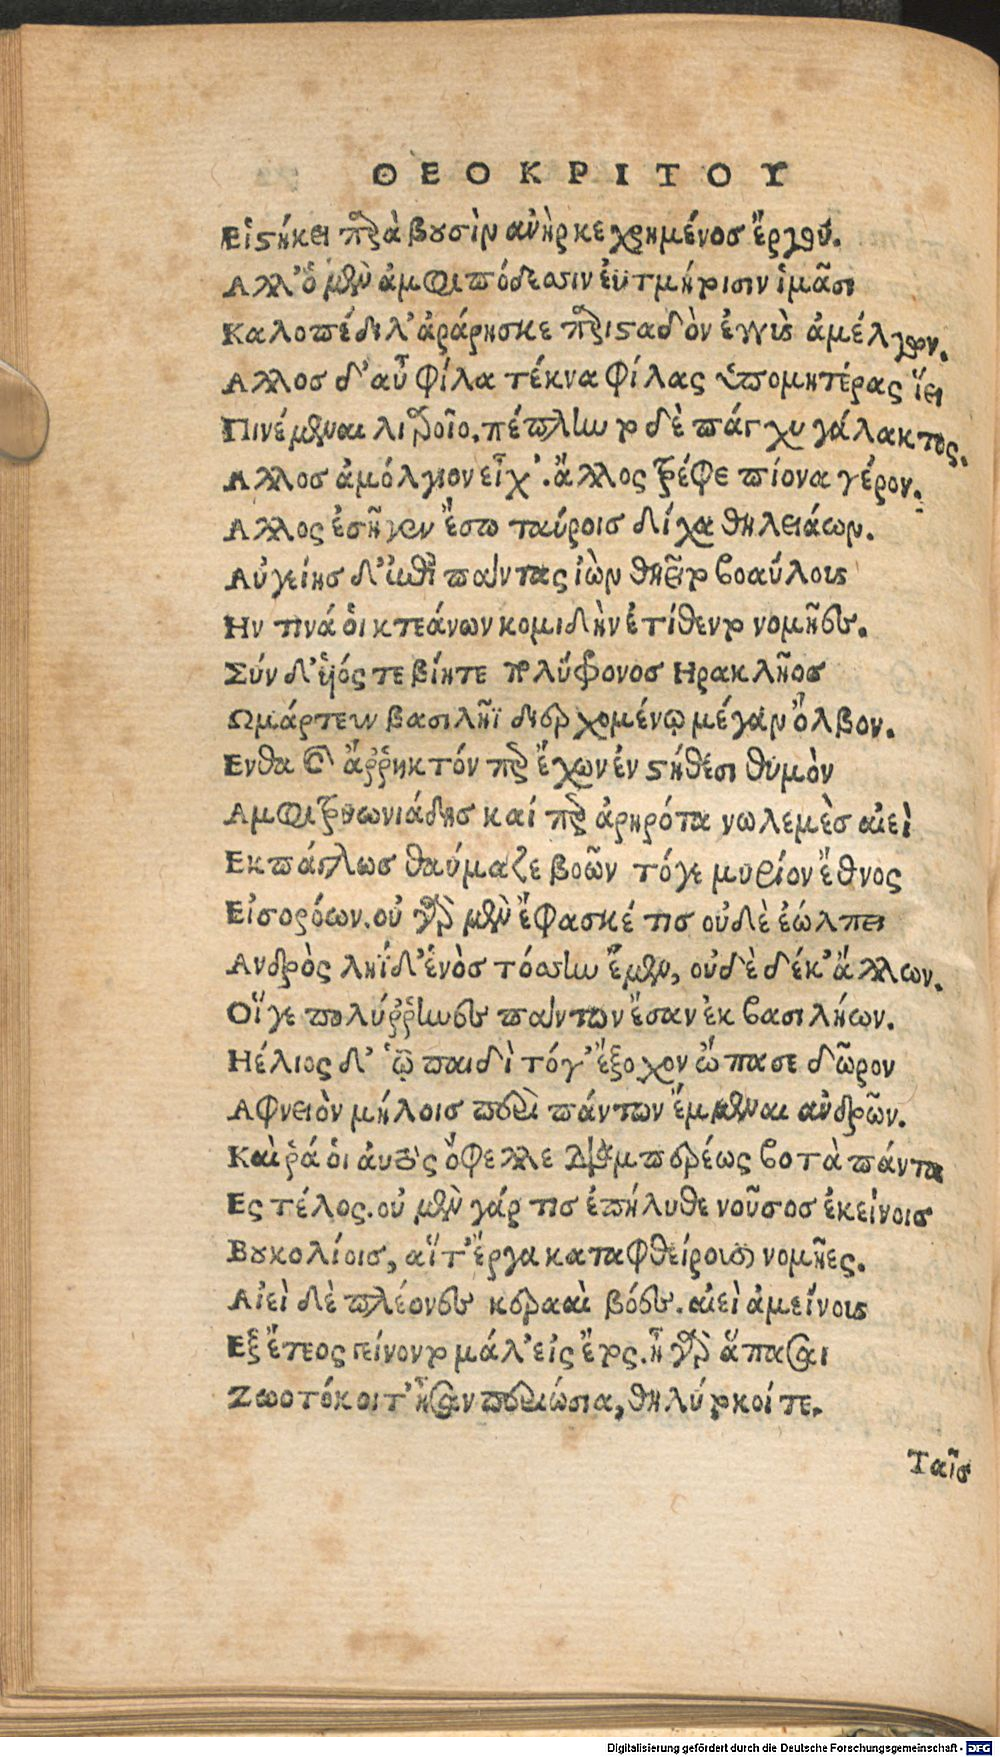 ΘΕΟΚΡΙΤΟΥ
Εἱστήκει παρὰ βουσὶν ἀνὴρ κεχρημένος ἔργου.
Αλλ' ὁ μὲν ἀμφὶ πόδεσσιν ἐϋτμήτοισιν ἱμᾶσι
Καλοπέδιλ' ἀράρησκε παρισταδὸν ἐγγὺς ἀμέλγων.
Αλλος δ' αὖ φίλα τέκνα φίλας ὑπὸ μητέρας ἵει
Πινέμεναι λιαροῖο. πέπληντο δὲ πάγχυ γάλακτος.
Αλλος ἀμόλγιον εἶχ'. ἄλλος τρέφε πίονα γέρον.
Αλλος ἐσῆγεν ἔσω ταύροις δίχα θηλειάων.
Αὐγείης δ' ἐπὶ πάντας ἰὼν θηεῖτο βοαύλοις
Ην τινά οἱ κτεάνων κομιδὴν ἐτίθεντο νομῆες.
Σύν δ' υἱός τε βίη τε πολύφονος Ηρακλῆος
Ωμάρτευν βασιλῆϊ διερχομένῳ μέγαν ὄλβον.
Ενθα καὶ ἄῤῥηκτόν περ ἔχων ἐν στήθεσι θυμὸν
Αμφιτρυωνιάδης καί περ ἀρηρότα νωλεμὲς αἰεὶ
Εκπάγλως θαύμαζε βοῶν τόγε μυρίον ἔθνος
Εἰσορόων. οὐ γὰρ μὲν ἔφασκέ τις οὐδὲ ἐώλπει
Ανδρὸς ληΐδ' ἑνὸς τόσσην ἔμεν, οὐδὲ δέκ' ἄλλων.
Οἵγε πολύῤῥηνες πάντων ἔσαν ἐκ βασιλήων.
Ηέλιος δ' ᾧ παιδὶ τόγ' ἔξοχον ὤπασε δῶρον
Αφνειὸν μήλοις περὶ πάντων ἔμμεναι ἀνδρῶν.
Καὶ ῥά οἱ αὐτὸς ὄφελλε διαμπερέως βοτὰ πάντα
Ες τέλος. οὐ μὲν γάρ τις ἐπήλυθε νοῦσος ἐκείνοις
Βουκολίοις, αἵτ' ἔργα καταφθείρουσι νομῆες.
Αἰεὶ δὲ πλέονες κερααὶ βόες. αἰεὶ ἀμείνους
Εξ ἔτεος γείνοντο μάλ' εἰς ἔτος. ἦ γὰρ ἅπασαι
Ζωοτόκοι τ' ἦσαν περιώσια, θηλύτοκοί τε.
Ταῖς
Digitalisierung gefördert durch die Deutsche Forschungsgemeinschaft - DFG